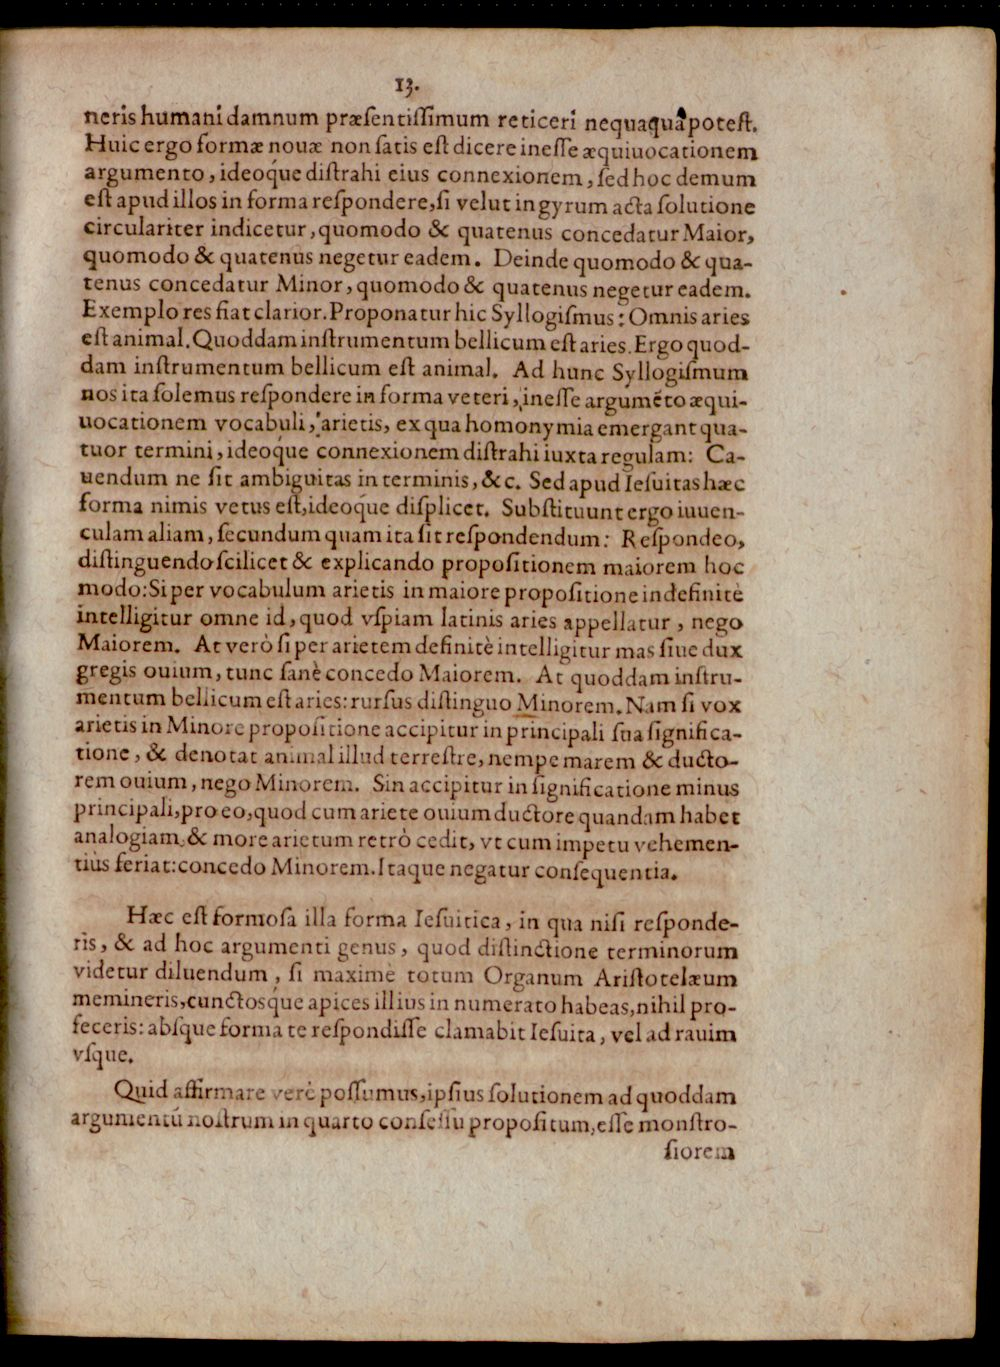 13.
neris humani damnum præsentissimum reticeri nequaquã potest.
Huic ergo formæ nouæ non satis est dicere inesse æquiuocationem
argumento, ideoq́ue distrahi eius connexionem, sed hoc demum
est apud illos in forma respondere, si velut in gyrum acta solutione
circulariter indicetur, quomodo & quatenus concedatur Maior,
quomodo & quatenus negetur eadem. Deinde quomodo & qua-
tenus concedatur Minor, quomodo & quatenus negetur eadem.
Exemplo res fiat clarior. Proponatur hic Syllogismus: Omnis aries
est animal. Quoddam instrumentum bellicum est aries. Ergo quod-
dam instrumentum bellicum est animal. Ad hunc Syllogismum
nos ita solemus respondere in forma veteri, inesse argumẽto æqui-
uocationem vocabuli, arietis, ex qua homonymia emergant qua-
tuor termini, ideoq́ue connexionem distrahi iuxta regulam: Ca-
uendum ne sit ambiguitas in terminis, &c. Sed apud Iesuitas hæc
forma nimis vetus est, ideoq́ue displicet. Substituunt ergo iuuen-
culam aliam, secundum quam ita sit respondendum: Respondeo,
distinguendo scilicet & explicando propositionem maiorem hoc
modo: Si per vocabulum arietis in maiore propositione indefinitè
intelligitur omne id, quod vspiam latinis aries appellatur, nego
Maiorem. At verò si per arietem definitè intelligitur mas siue dux
gregis ouium, tunc sanè concedo Maiorem. At quoddam instru-
mentum bellicum est aries: rursus distinguo Minorem. Nam si vox
arietis in Minore propositione accipitur in principali sua significa-
tione, & denotat animal illud terrestre, nempe marem & ducto-
rem ouium, nego Minorem. Sin accipitur in significatione minus
principali, pro eo, quod cum ariete ouium ductore quandam habet
analogiam, & more arietum retrò cedit, vt cum impetu vehemen-
tius feriat: concedo Minorem. Itaque negatur consequentia.
Hæc est formosa illa forma Iesuitica, in qua nisi responde-
ris, & ad hoc argumenti genus, quod distinctione terminorum
videtur diluendum, si maximè totum Organum Aristotelæum
memineris, cunctosq́ue apices illius in numerato habeas, nihil pro-
feceris: absque forma te respondisse clamabit Iesuita, vel ad rauim
vsque.
Quid affirmare verè possumus, ipsius solutionem ad quoddam
argumentũ nostrum in quarto confessu propositum, esse monstro-
siorem